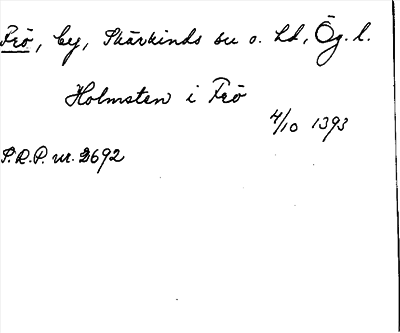 Frö, by, Skärkinds sn o. hd, Ög. l.
Holmsten i Frö
4/10 1393
S.R.P. nr. 2692